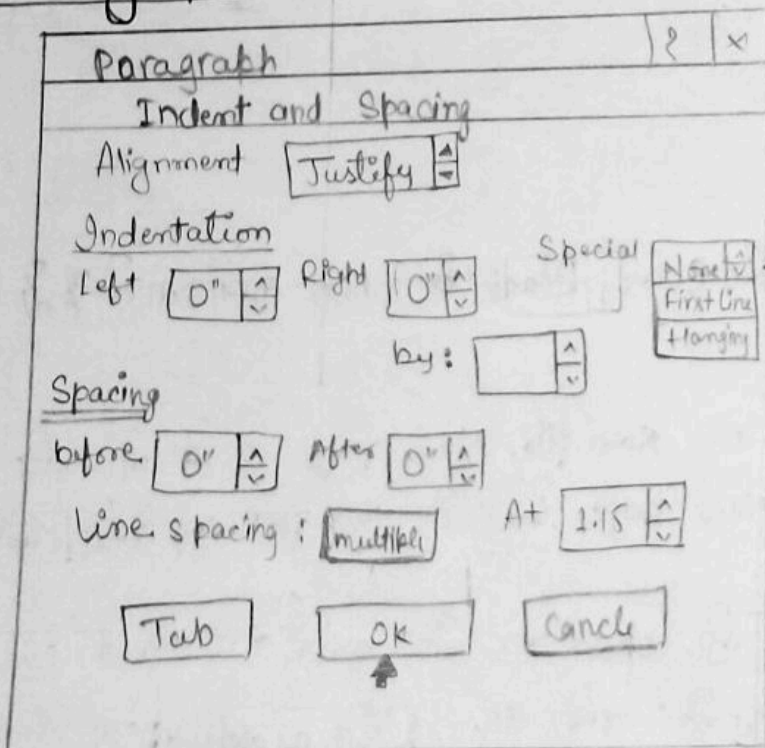 Paragraph ? ×
Indent and Spacing
Alignment Justify
Indentation
Left 0" Right 0" Special None
First Line
Hanging
by:
Spacing
before 0" After 0"
Line spacing : multiple At 1:15
Tab OK Cancle